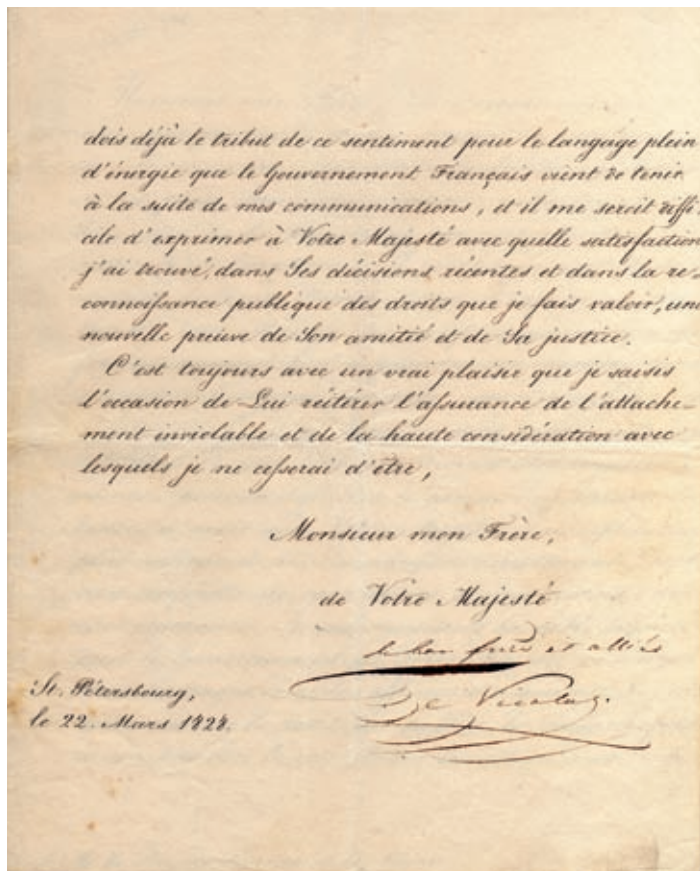 dois déjà le tribut de ce sentiment pour le langage plein
d'énergie que le Gouvernement Français vient de tenir
à la suite de mes communications, et il me seroit diffi
cile d'exprimer à Votre Majesté avec quelle satisfaction
j'ai trouvé, dans Ses décisions récentes et dans la re-
connoissance publique des droits que je fais valoir, une
nouvelle preuve de Son amitié et de Sa justice.
C'est toujours avec un vrai plaisir que je saisis
l'occasion de Lui réitérer l'assurance de l'attache-
ment inviolable et de la haute considération avec
lesquels je ne cesserai d'être,
Monsieur mon Frère,
de Votre Majesté
le bon frère et alliés
Nicolas.
St. Pétersbourg,
le 22. Mars 1828.